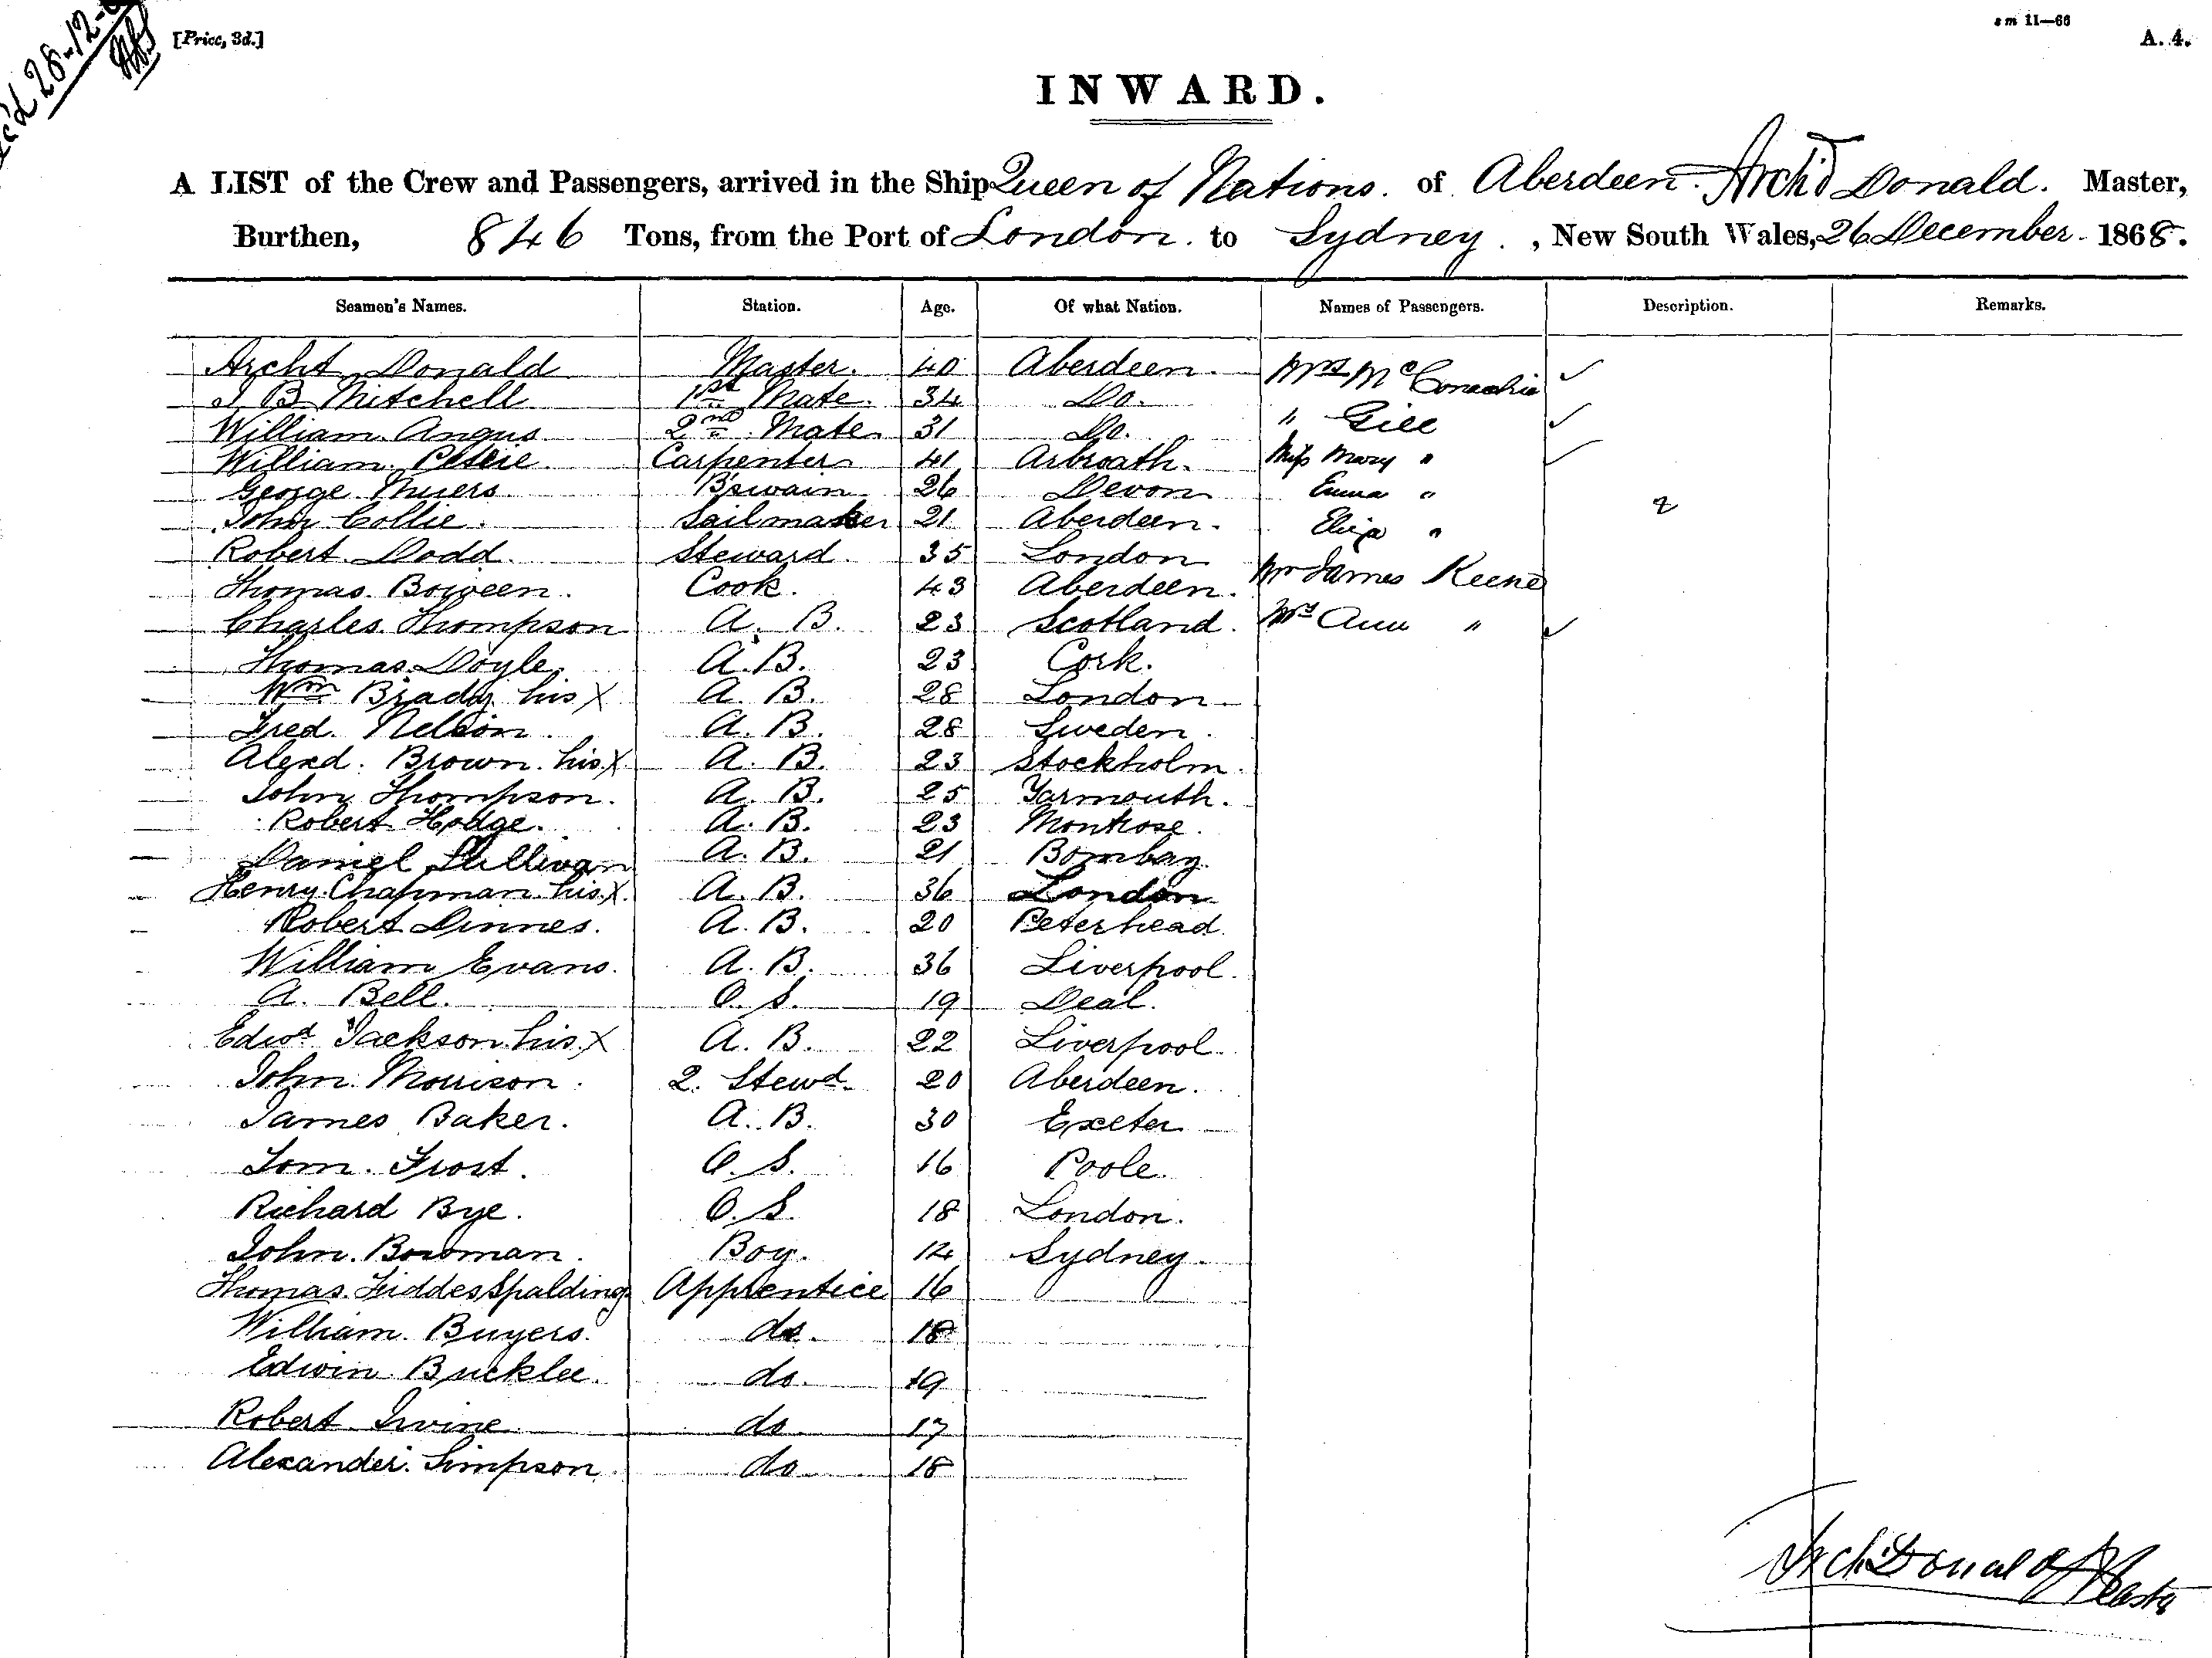 28-12-
[Price, 3d.]
s m 11—66
A. 4.
INWARD.
A LIST of the Crew and Passengers, arrived in the Ship Queen of Nations. of Aberdeen. Arch'd Donald. Master,
Burthen, 846 Tons, from the Port of London. to Sydney. , New South Wales, 26 December 1868.
Seamen's Names. Station. Age. Of what Nation. Names of Passengers. Description. Remarks.
Archd Donald Master. 40 Aberdeen. Mrs McConachie
J B Mitchell 1st Mate. 34 Do.
William Angus 2nd Mate 31 Do. " Gill
William Petrie. Carpenter 41 Arbroath. Miss Mary "
George Myers B'swain 26 Devon Emma "
John Collie. Sailmaker 21 Aberdeen. Eliza "
Robert Dodd. Steward. 35 London
Thomas Boween. Cook. 43 Aberdeen. Mr James Keene
Charles Thompson A. B. 23 Scotland. Mrs Ann "
Thomas Doyle. A. B. 23 Cork.
Wm Brady his X A. B. 28 London
Fred. Nelson. A. B. 28 Sweden.
Alexd. Brown. his X A. B. 23 Stockholm.
John Thompson. A. B. 25 Yarmouth.
Robert Hodge. A. B. 23 Montrose.
Daniel Sullivan A. B. 21 Bombay.
Henry Chapman his X. A. B. 36 London
Robert Dinnes. A. B. 20 Peterhead.
William Evans. A. B. 36 Liverpool.
A. Bell. O. S. 19 Deal.
Edwd Jackson his X A. B. 22 Liverpool.
John Morrison. 2. Stewd. 20 Aberdeen.
James Baker. A. B. 30 Exeter
Tom. Frost. O. S. 16 Poole.
Richard Bye. O. S. 18 London.
John. Bowman. Boy. 14 Sydney.
Thomas Fiddes Spalding Apprentice 16
William. Buyers. do. 18
Edwin Bucklee. do. 19
Robert Irvine do 17
Alexander. Simpson do 18
Arch. Donald Master